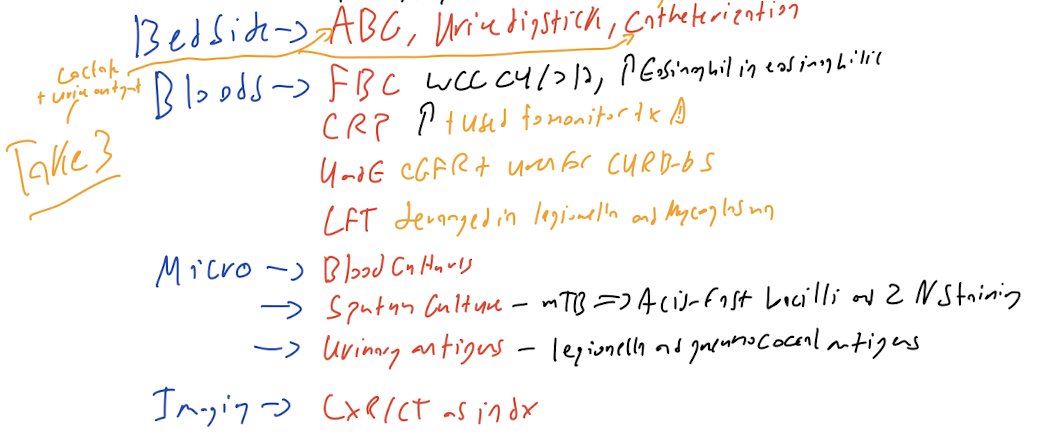 Bedside → ABG, Urine dipstick, Catheterization
Lactate
+ urine output
Take 3
Bloods → FBC WCC, ↑Eosinophil in eosinophilic
CRP ↑ + used to monitor tx
UandE eGFR + urea for CURB-65
LFT deranged in legionella and Mycoplasma
Micro → Blood Cultures
→ Sputum Culture - mTB => Acid-Fast bacilli and ZN Staining
→ Urinary antigens - legionella and pneumococcal antigens
Imaging → CXR/CT as indx